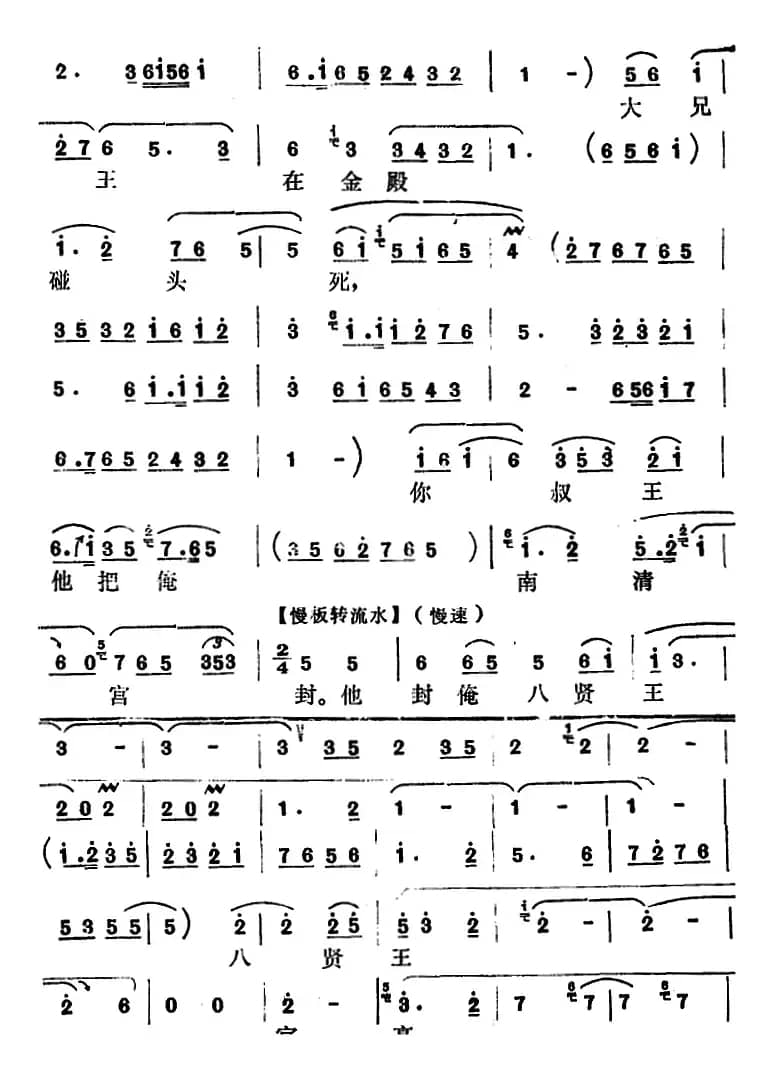 2. 36i56i | 6.i652432 | 1 -) 56 i |
大 兄
276 5. 3 | 6 i3 3432 | 1. (656i) |
王 在 金 殿
i. 2 76 5 | 5 6i i5i65 | 4 (2767665 |
碰 头 死,
3532i6i2 | 3 6i.ii276 | 5. 32321 |
5. 6i.ii2 | 3 6i6543 | 2 - 656i7 |
6.7652432 | 1 -) i6i | 6 353 2i |
你 叔 王
6.i 35 27.65 | (3562765) | 6i. 2 5.2 2i |
他 把 俺 南 清
【慢板转流水】(慢速)
60 5765 353 | 2/4 5 5 | 6 65 5 6i | i3. |
宫 封。他 封 俺 八 贤 王
3 - | 3 - | 3 35 2 35 | 2 i2 | 2 - |
202 | 202 | 1. 2 | 1 - | 1 - | 1 - |
(i.235 | 232i | 7656 | i. 2 | 5. 6 | 7276 |
5355 | 5) 2 | 2 25 | 53 2 | i2 - | 2 - |
八 贤 王
2 6 | 0 0 | 2 - | 53. 2 | 7 67 | 7 67 |